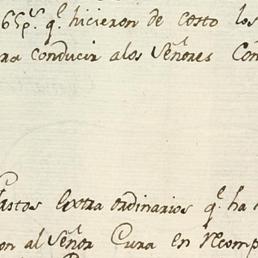 65p.s q.e hicieron de costo los
ra conducir alos Señores Con
astos Extra ordinarios q.e ha
on al Señor Cura en Recomp